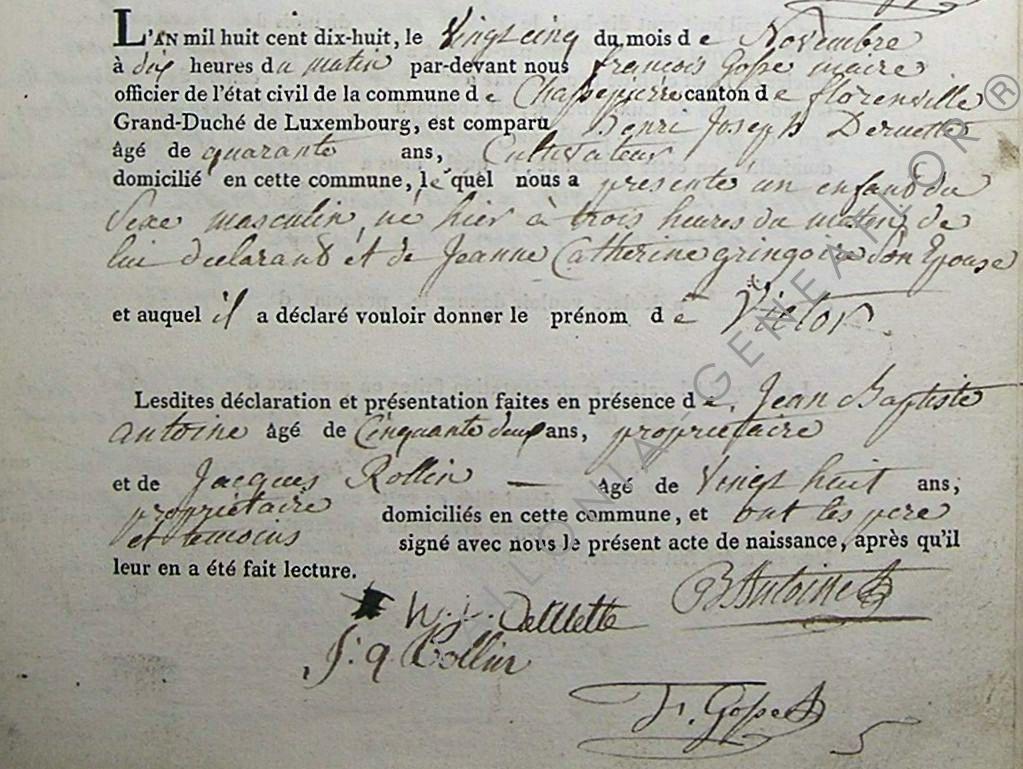 L'AN mil huit cent dix-huit, le Vingt cinq du mois de Novembre
à dix heures du matin par-devant nous françois Gofse maire
officier de l'état civil de la commune de Chassepierre canton de florenville
Grand-Duché de Luxembourg, est comparu henri Joseph Deruette
âgé de quarante ans, Cultivateur
domicilié en cette commune, le quel nous a présenté un enfant du
Sexe masculin, né hier à trois heures du matin, de
lui declarant et de Jeanne Catherine gringoire Son Epouse
et auquel il a déclaré vouloir donner le prénom de Victor.
Lesdites déclaration et présentation faites en présence de Jean Baptiste
antoine âgé de Cinquante deux ans, propriétaire
et de Jacques Rollin — âgé de Vingt huit ans,
propriétaire domiciliés en cette commune, et ont les pere
et temoins signé avec nous le présent acte de naissance, après qu'il
leur en a été fait lecture.
h. j. Deruette
B Antoine
J. q. Rollin
F. Gofse
5
ILONA GENEALOR ®